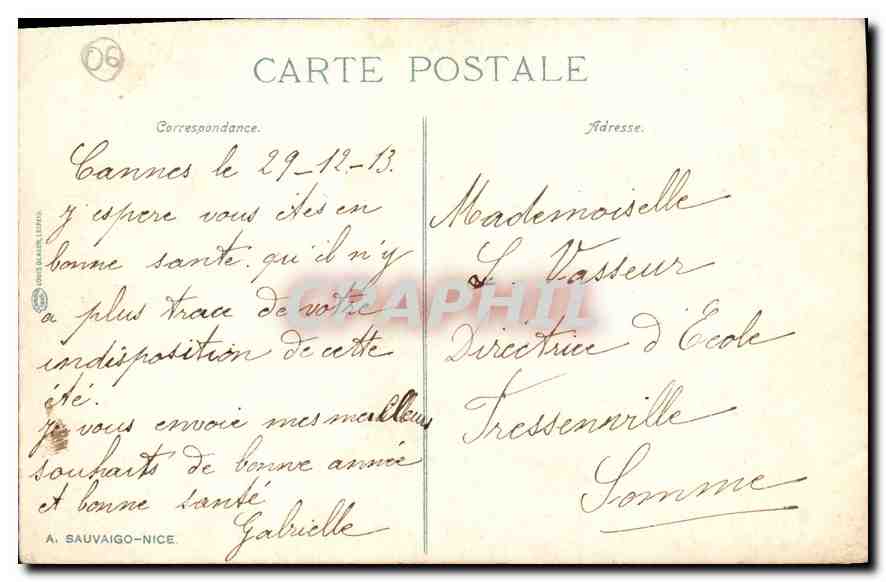 06
CARTE POSTALE
Correspondance.
Cannes le 29-12-13.
J'espere vous êtes en
bonne santé. qu'il n'y
a plus trace de votre
indisposition de cette
été.
Je vous envoie mes meilleurs
souhaits de bonne année
et bonne santé
Gabrielle
A. SAUVAIGO-NICE.
LOUIS GLASER, LEIPZIG.
Adresse.
Mademoiselle
L. Vasseur
Directrice d'Ecole
Fressenville
Somme
CPAPHIL